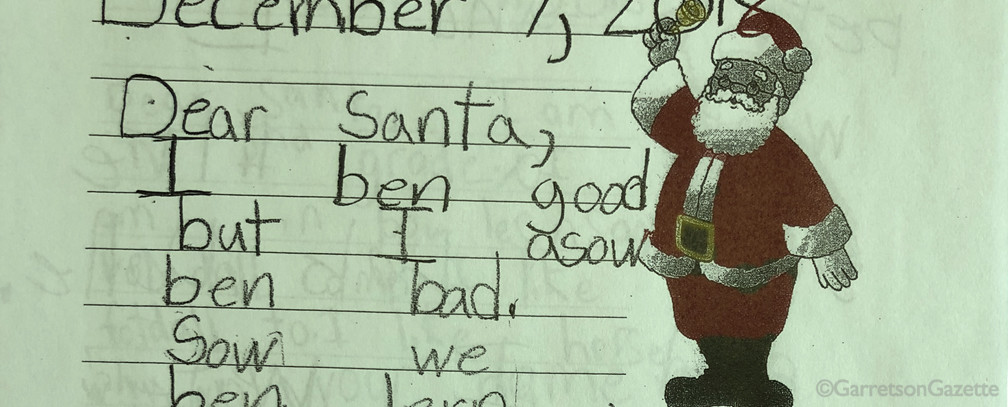 December 7, 201
Dear Santa,
I ben good
but I asow
ben bad.
Sow we
ben lern
©GarretsonGazette